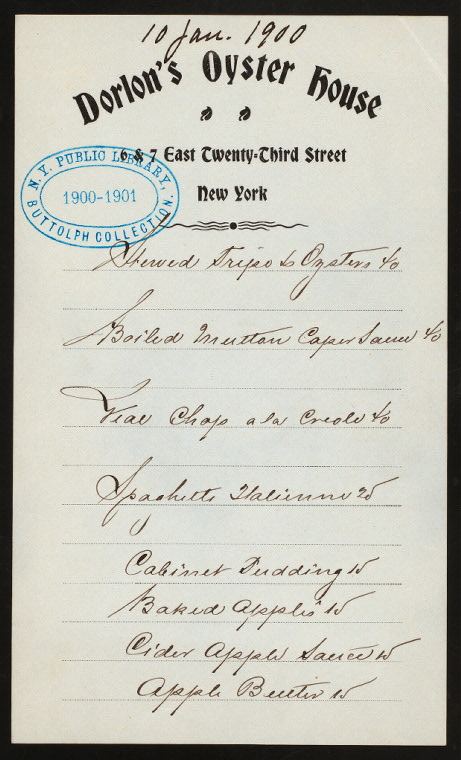 10 Jan. 1900
Dorlon's Oyster House
6 & 7 East Twenty-Third Street
New York
N. Y. PUBLIC LIBRARY,
1900-1901
BUTTOLPH COLLECTION.
Stewed Tripe & Oysters 40
Boiled Mutton Caper Sauce 40
Veal Chop a la Creole 40
Spaghetti Italienne 25
Cabinet Pudding 15
Baked Apples 15
Cider Apple Sauce 15
Apple Butter 15